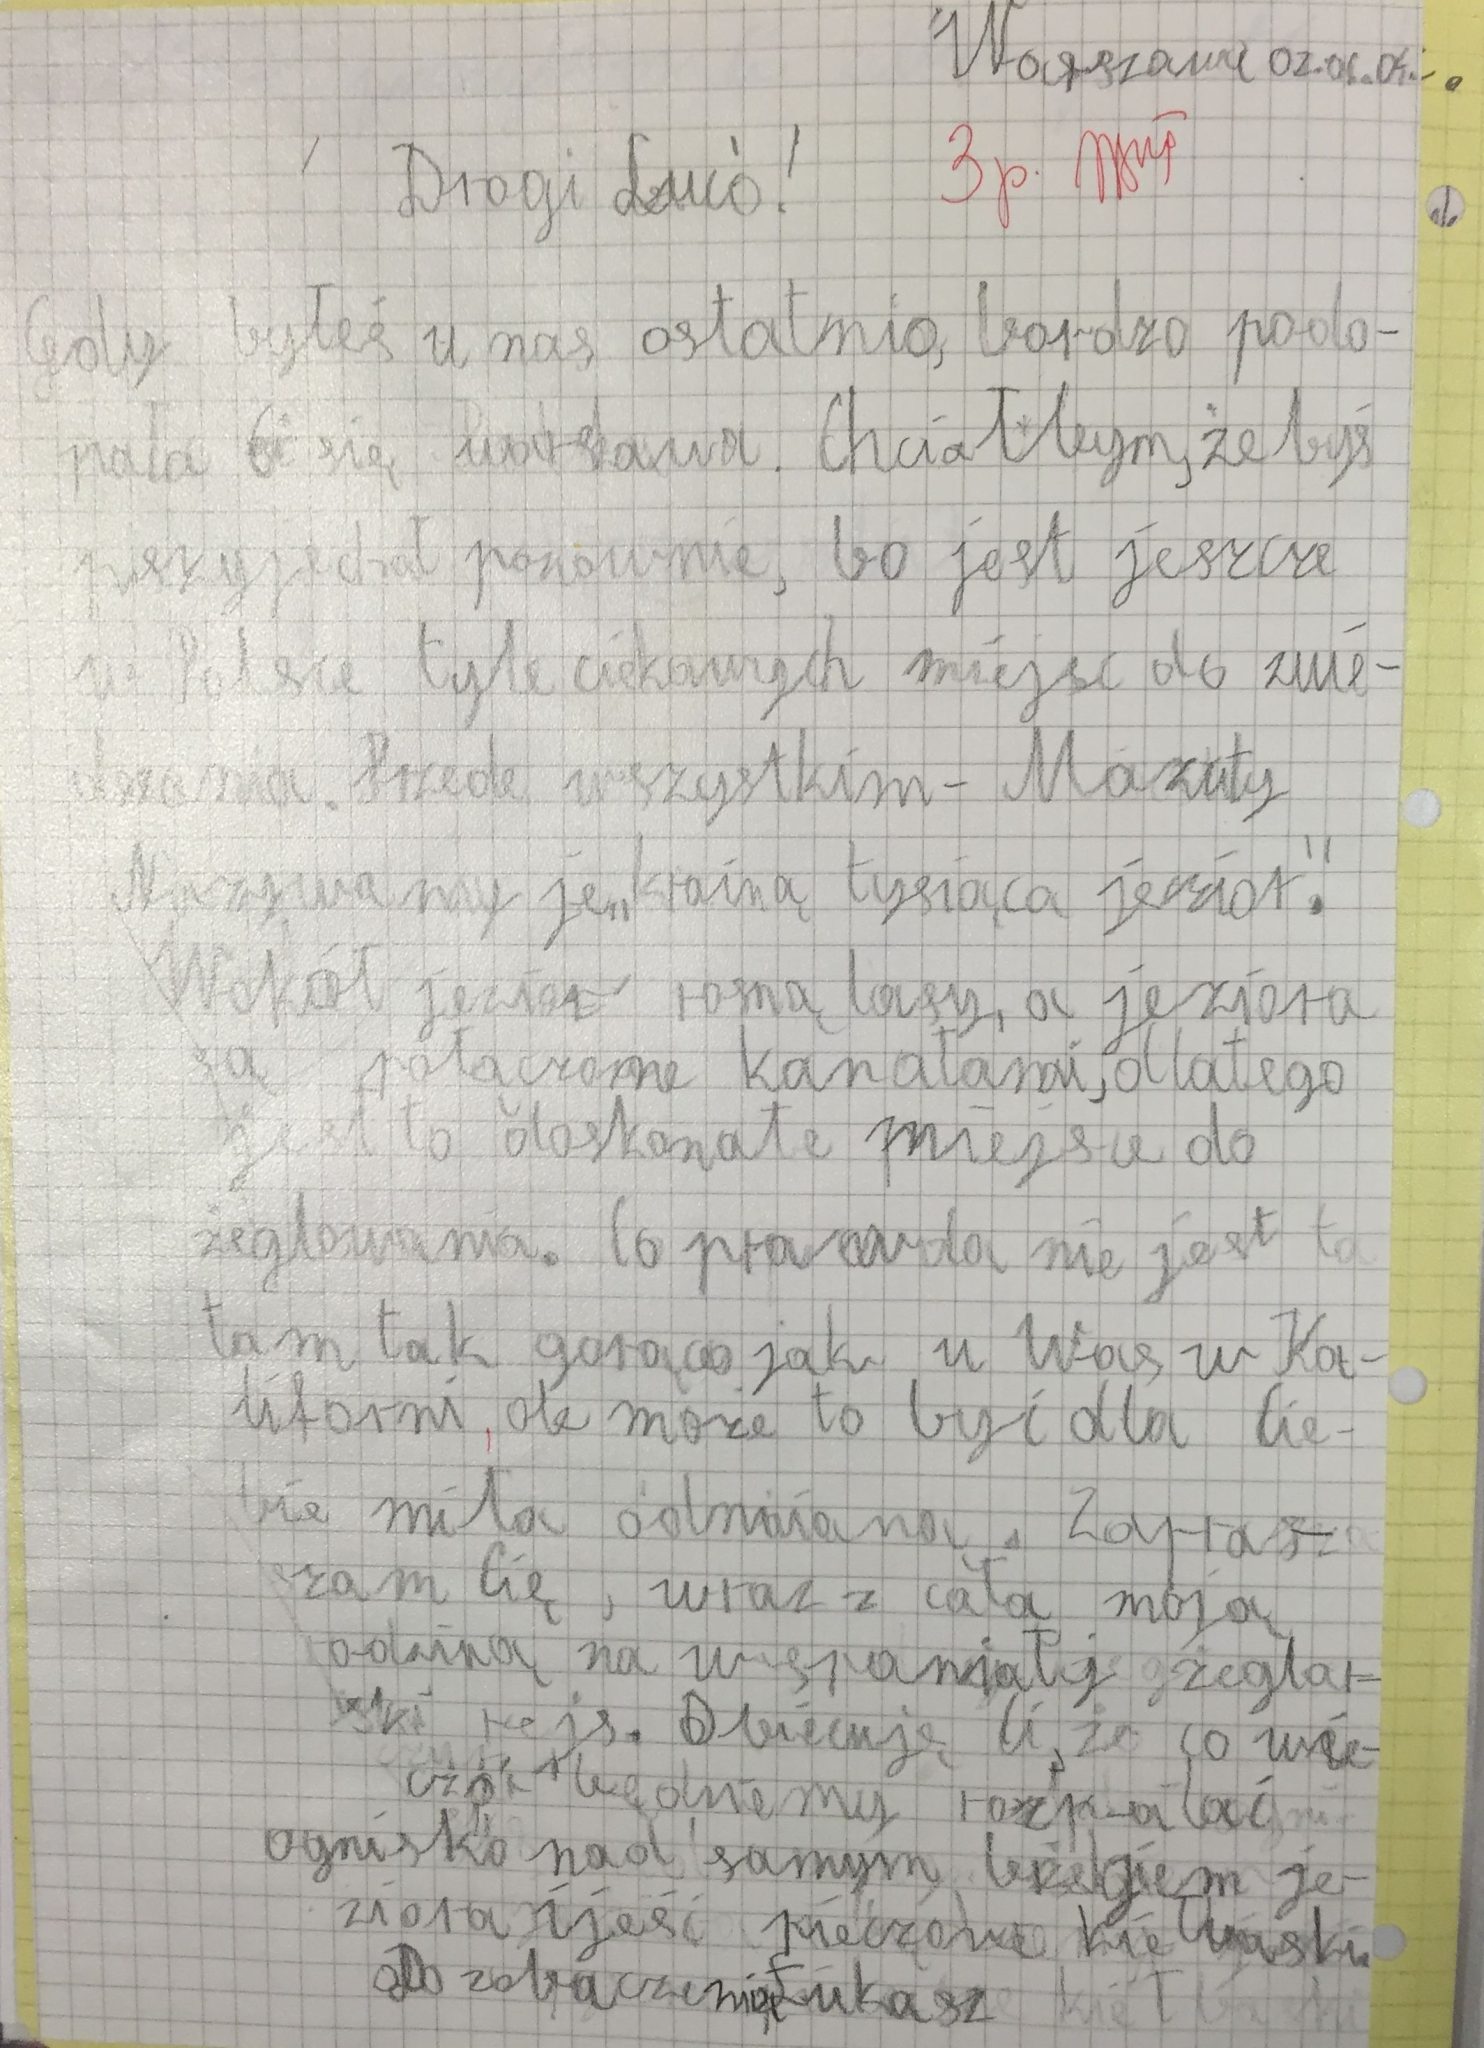 Warszawa 02.06.04.
3 p.
Drogi Lucio!
Gdy byłeś u nas ostatnio, bardzo podo-
pała Ci się Warszawa. Chciałbym, żebyś
przyjechał ponownie, bo jest jeszcze
w Polsce tyle ciekawych miejsc do zwie-
dzania. Przede wszystkim - Mazury
Nazywamy je „krainą tysiąca jezior".
Wokół jezior rosną lasy, a jeziora
są połączone kanałami, dlatego
jest to doskonałe miejsce do
żeglowania. Co prawda nie jest ta
tam tak gorąco jak u Was w Ka-
liforni, ale może to być dla Cie-
bie miła odmiana. Zapra-
szam Cię, wraz z całą moją
rodziną na wspaniały żeglar-
ski rejs. Obiecuję Ci, że co wie-
czór będziemy rozpalać
ognisko nad samym brzegiem je-
ziora i jeść pieczone kiełbaski.
Do zobaczenia Łukasz